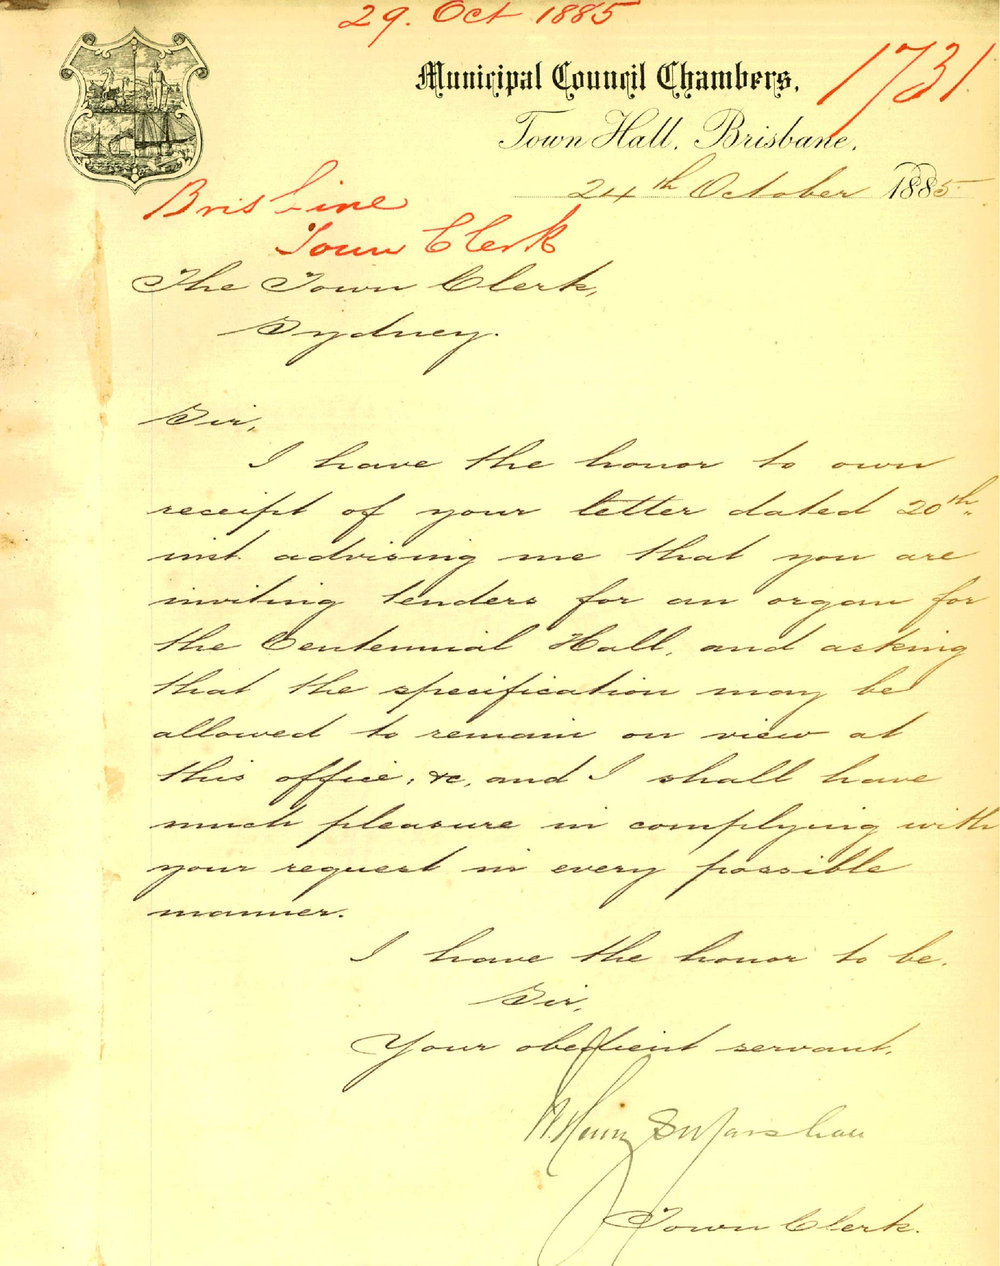 29. Oct 1885
Municipal Council Chambers,
1731
Town Hall, Brisbane,
24th October 1885
Brisbine
Town Clerk
The Town Clerk,
Sydney.
Sir,
I have the honor to own
receipt of your letter dated 20th
inst. advising me that you are
inviting tenders for an organ for
the Centennial Hall, and asking
that the specification may be
allowed to remain on view at
this office, &c, and I shall have
much pleasure in complying with
your request in every possible
manner.
I have the honor to be.
Sir,
Your obedient servant.
Henry Marshall
Town Clerk.